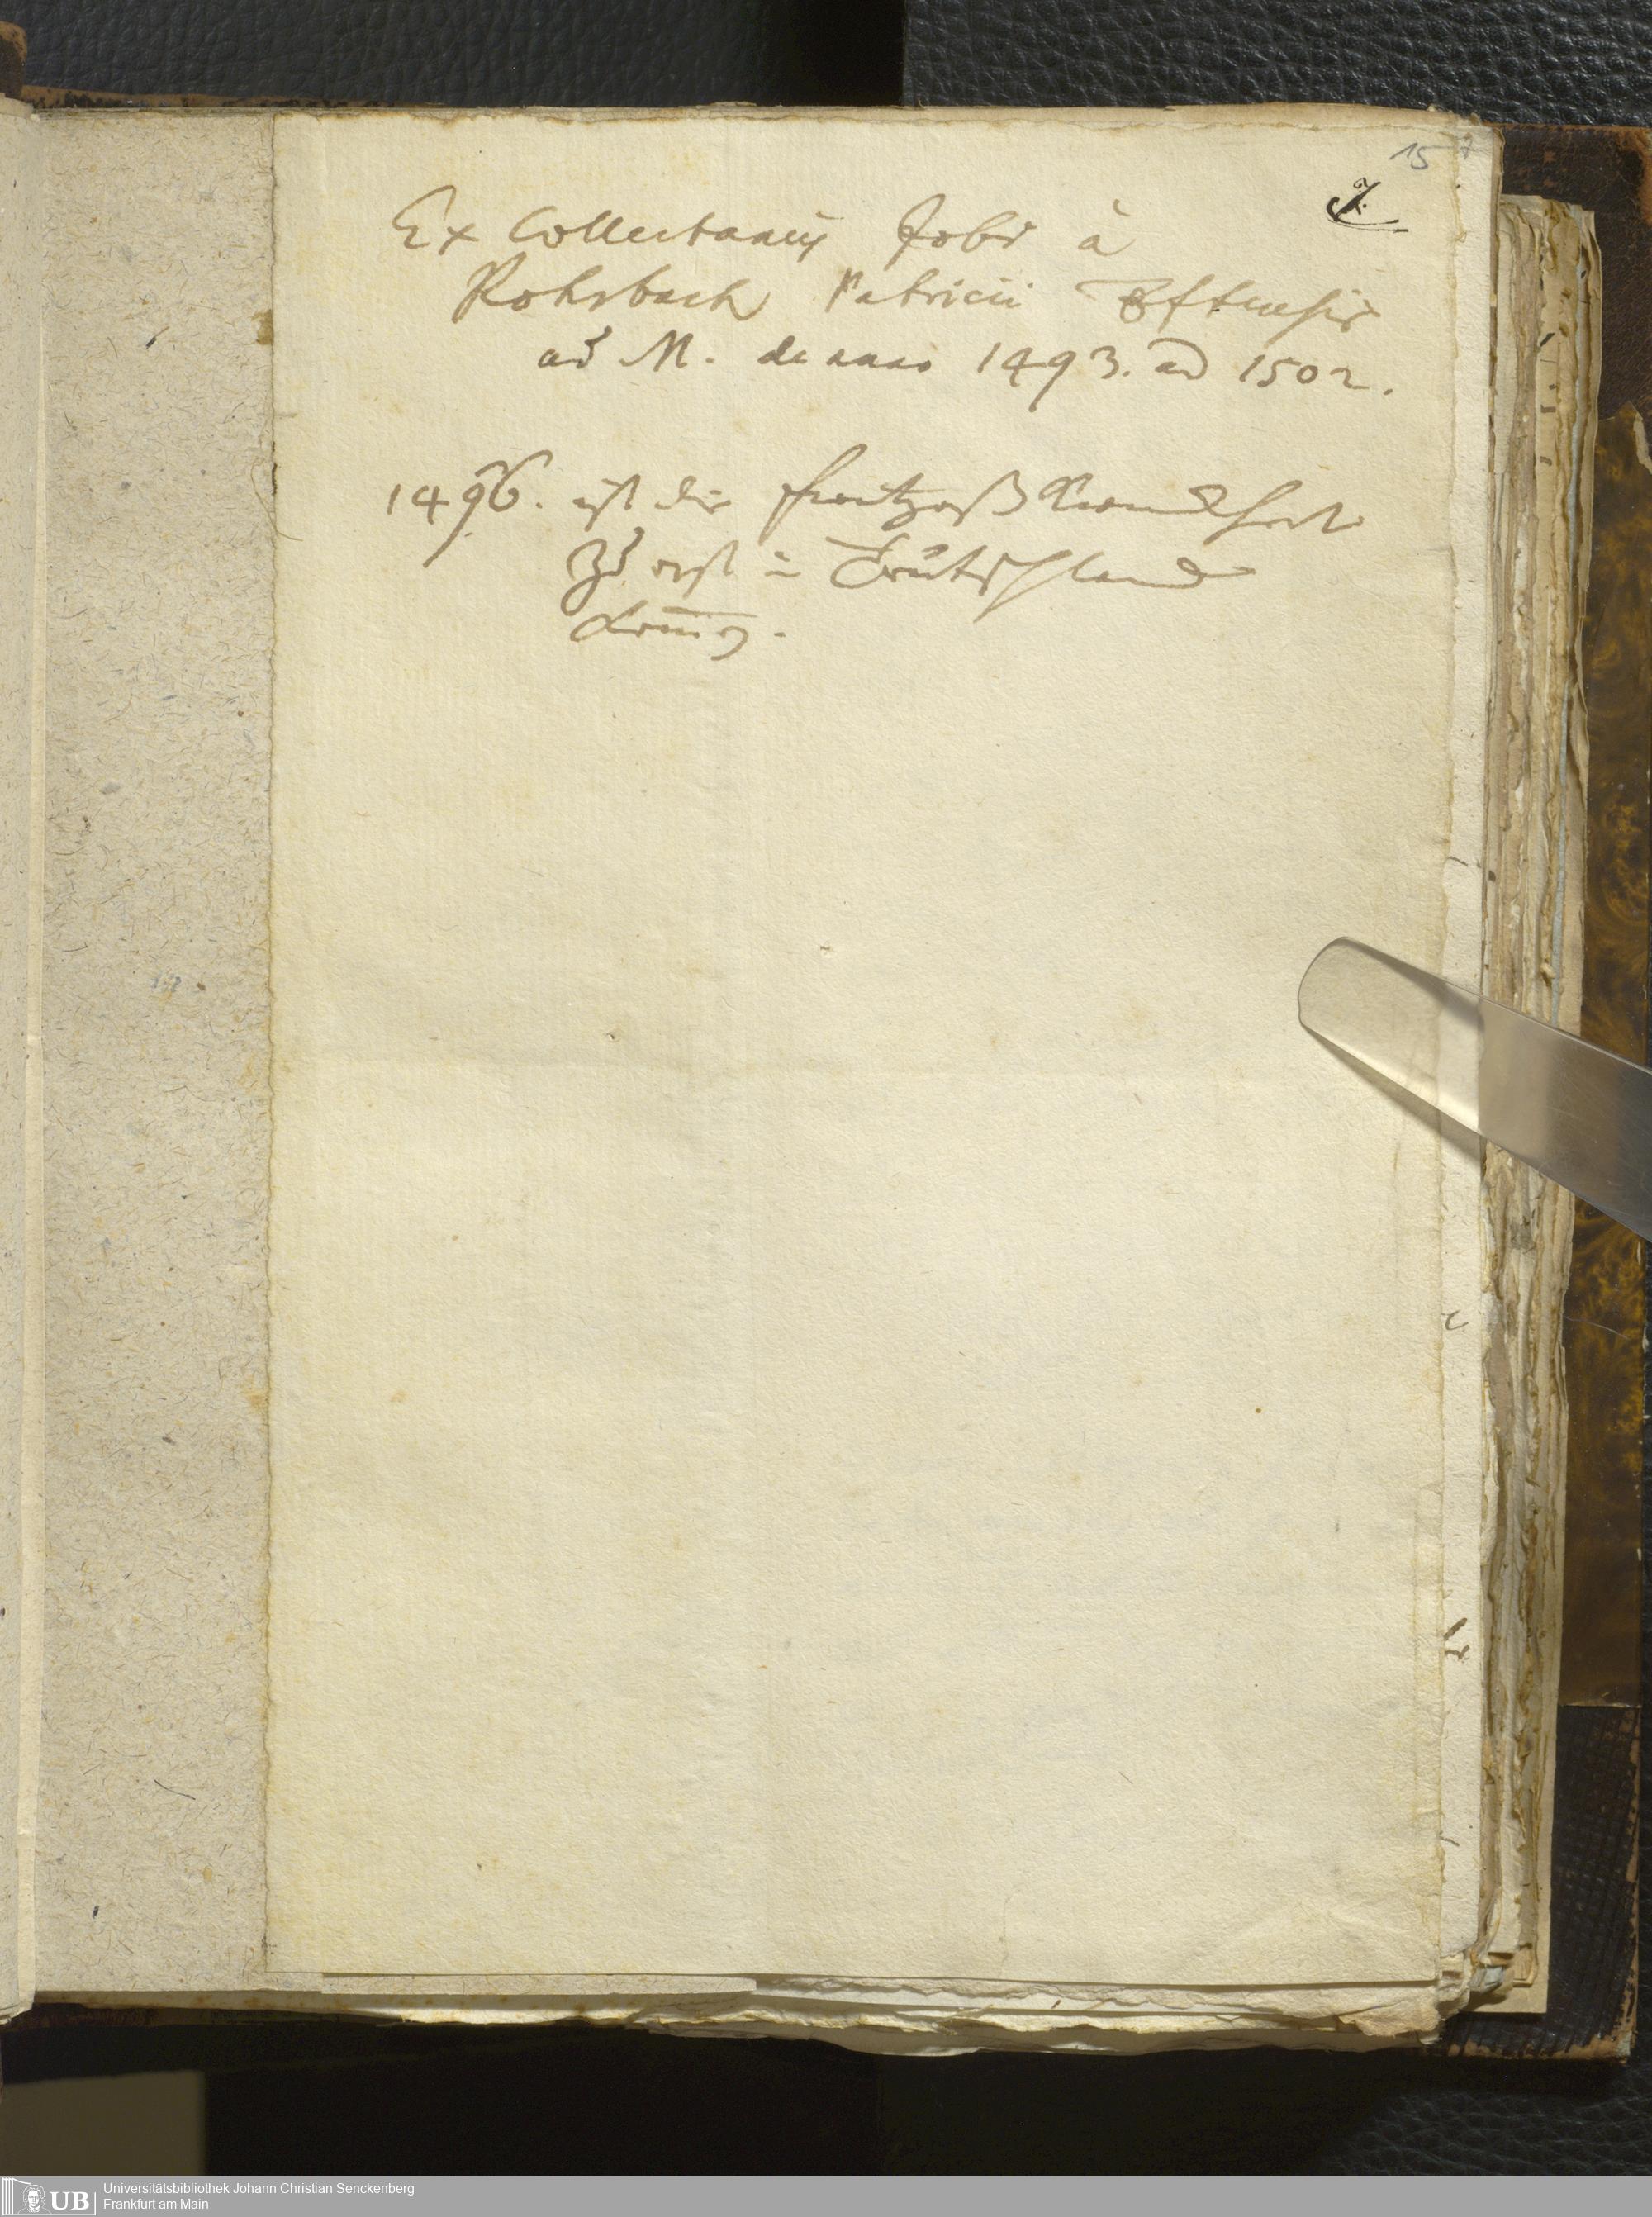 15 7
7.
Ex Collectaneis Jobi à
Rohrbach Patricii Fftensis
ad M. de anno 1493. ad 1502.
1496. ist die frantzoß Kranckheit
zu erst in Teütschland
kom̄en.
UB Universitätsbibliothek Johann Christian Senckenberg
Frankfurt am Main